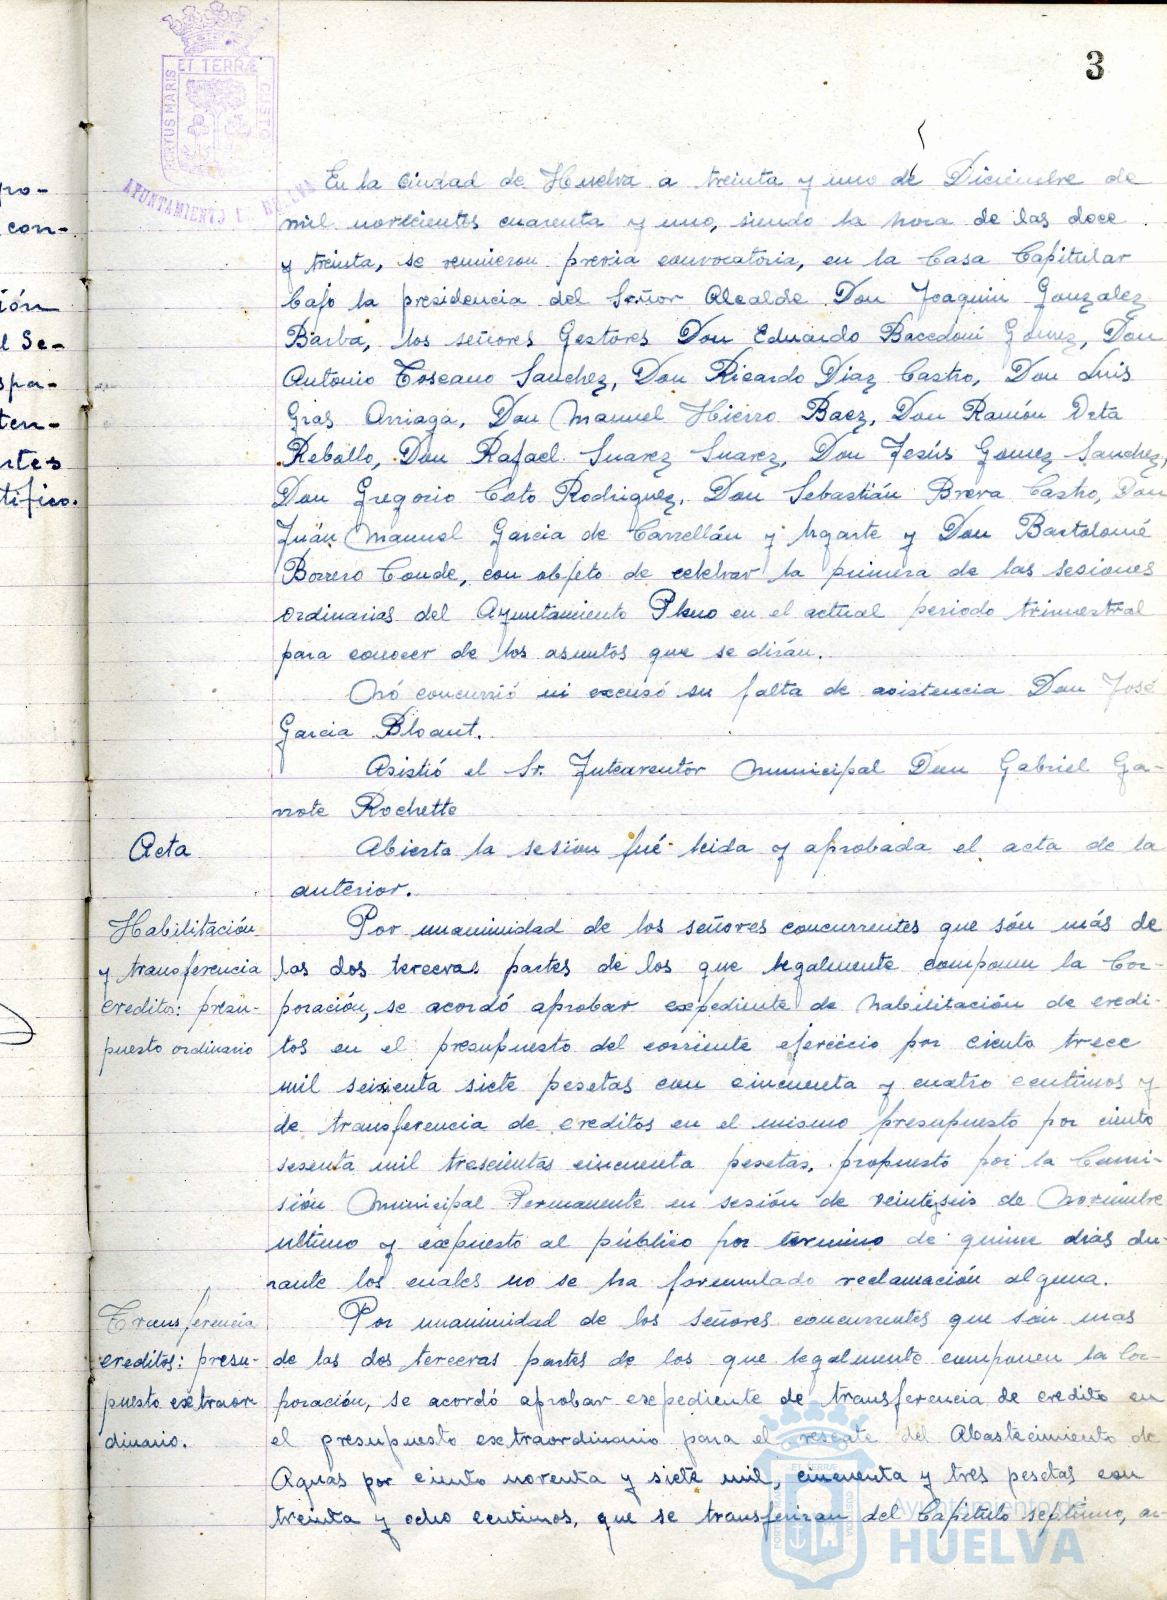 3
PORTUS MARIS ET TERRÆ CUSTO
AYUNTAMIENTO
En la Ciudad de Huelva a treinta y uno de Diciembre de
mil novecientos cuarenta y uno, siendo la hora de las doce
y treinta, se reunieron previa convocatoria, en la Casa Capitular
bajo la presidencia del Señor Alcalde Don Joaquin Gonzalez
Barba, los señores Gestores Don Eduardo Bacedoni Gomez, Don
Antonio Toscano Sanchez, Don Ricardo Diaz Castro, Don Luis
Gras Arriaga, Don Manuel Hierro Baez, Don Ramón Deta
Rebollo, Don Rafael Suarez Suarez, Don Jesús Gomez Sanchez,
Don Gregorio Coto Rodriguez, Don Sebastián Breva Castro, Don
Juán Manuel Garcia de Carrellán y Ugarte y Don Bartolomé
Borrero Conde, con objeto de celebrar la primera de las sesiones
ordinarias del Ayuntamiento Pleno en el actual periodo trimestral
para conocer de los asuntos que se dirán.
Nó concurrió ni excusó su falta de asistencia Don José
Garcia Bloant.
Asistió el Sr. Interventor Municipal Don Gabriel Ga-
rrote Rochette
Acta
Abierta la sesión fué leida y aprobada el acta de la
anterior.
Habilitación
y transferencia
creditos: presu-
puesto ordinario
Por unanimidad de los señores concurrentes que són más de
las dos terceras partes de los que legalmente componen la Cor-
poración, se acordó aprobar expediente de habilitación de credi-
tos en el presupuesto del corriente ejercicio por ciento trece
mil sesenta siete pesetas con cincuenta y cuatro centimos y
de transferencia de creditos en el mismo presupuesto por ciento
sesenta mil trescientas cincuenta pesetas, propuesto por la Comi-
sión Municipal Permanente en sesión de veintiseis de Noviembre
ultimo y expuesto al público por termino de quince dias du-
rante los cuales no se ha formulado reclamación alguna.
Transferencia
creditos: presu-
puesto extraor
dinario.
Por unanimidad de los señores concurrentes que són mas
de las dos terceras partes de los que legalmente componen la Cor-
poración, se acordó aprobar expediente de transferencia de credito en
el presupuesto extraordinario para el rescate del Abastecimiento de
Aguas por ciento noventa y siete mil, cincuenta y tres pesetas con
treinta y ocho centimos, que se transferiran del Capitulo septimo, ar-
Ayuntamiento de
HUELVA
con-
ión
l Se-
spa-
ten-
rtes
tifico.